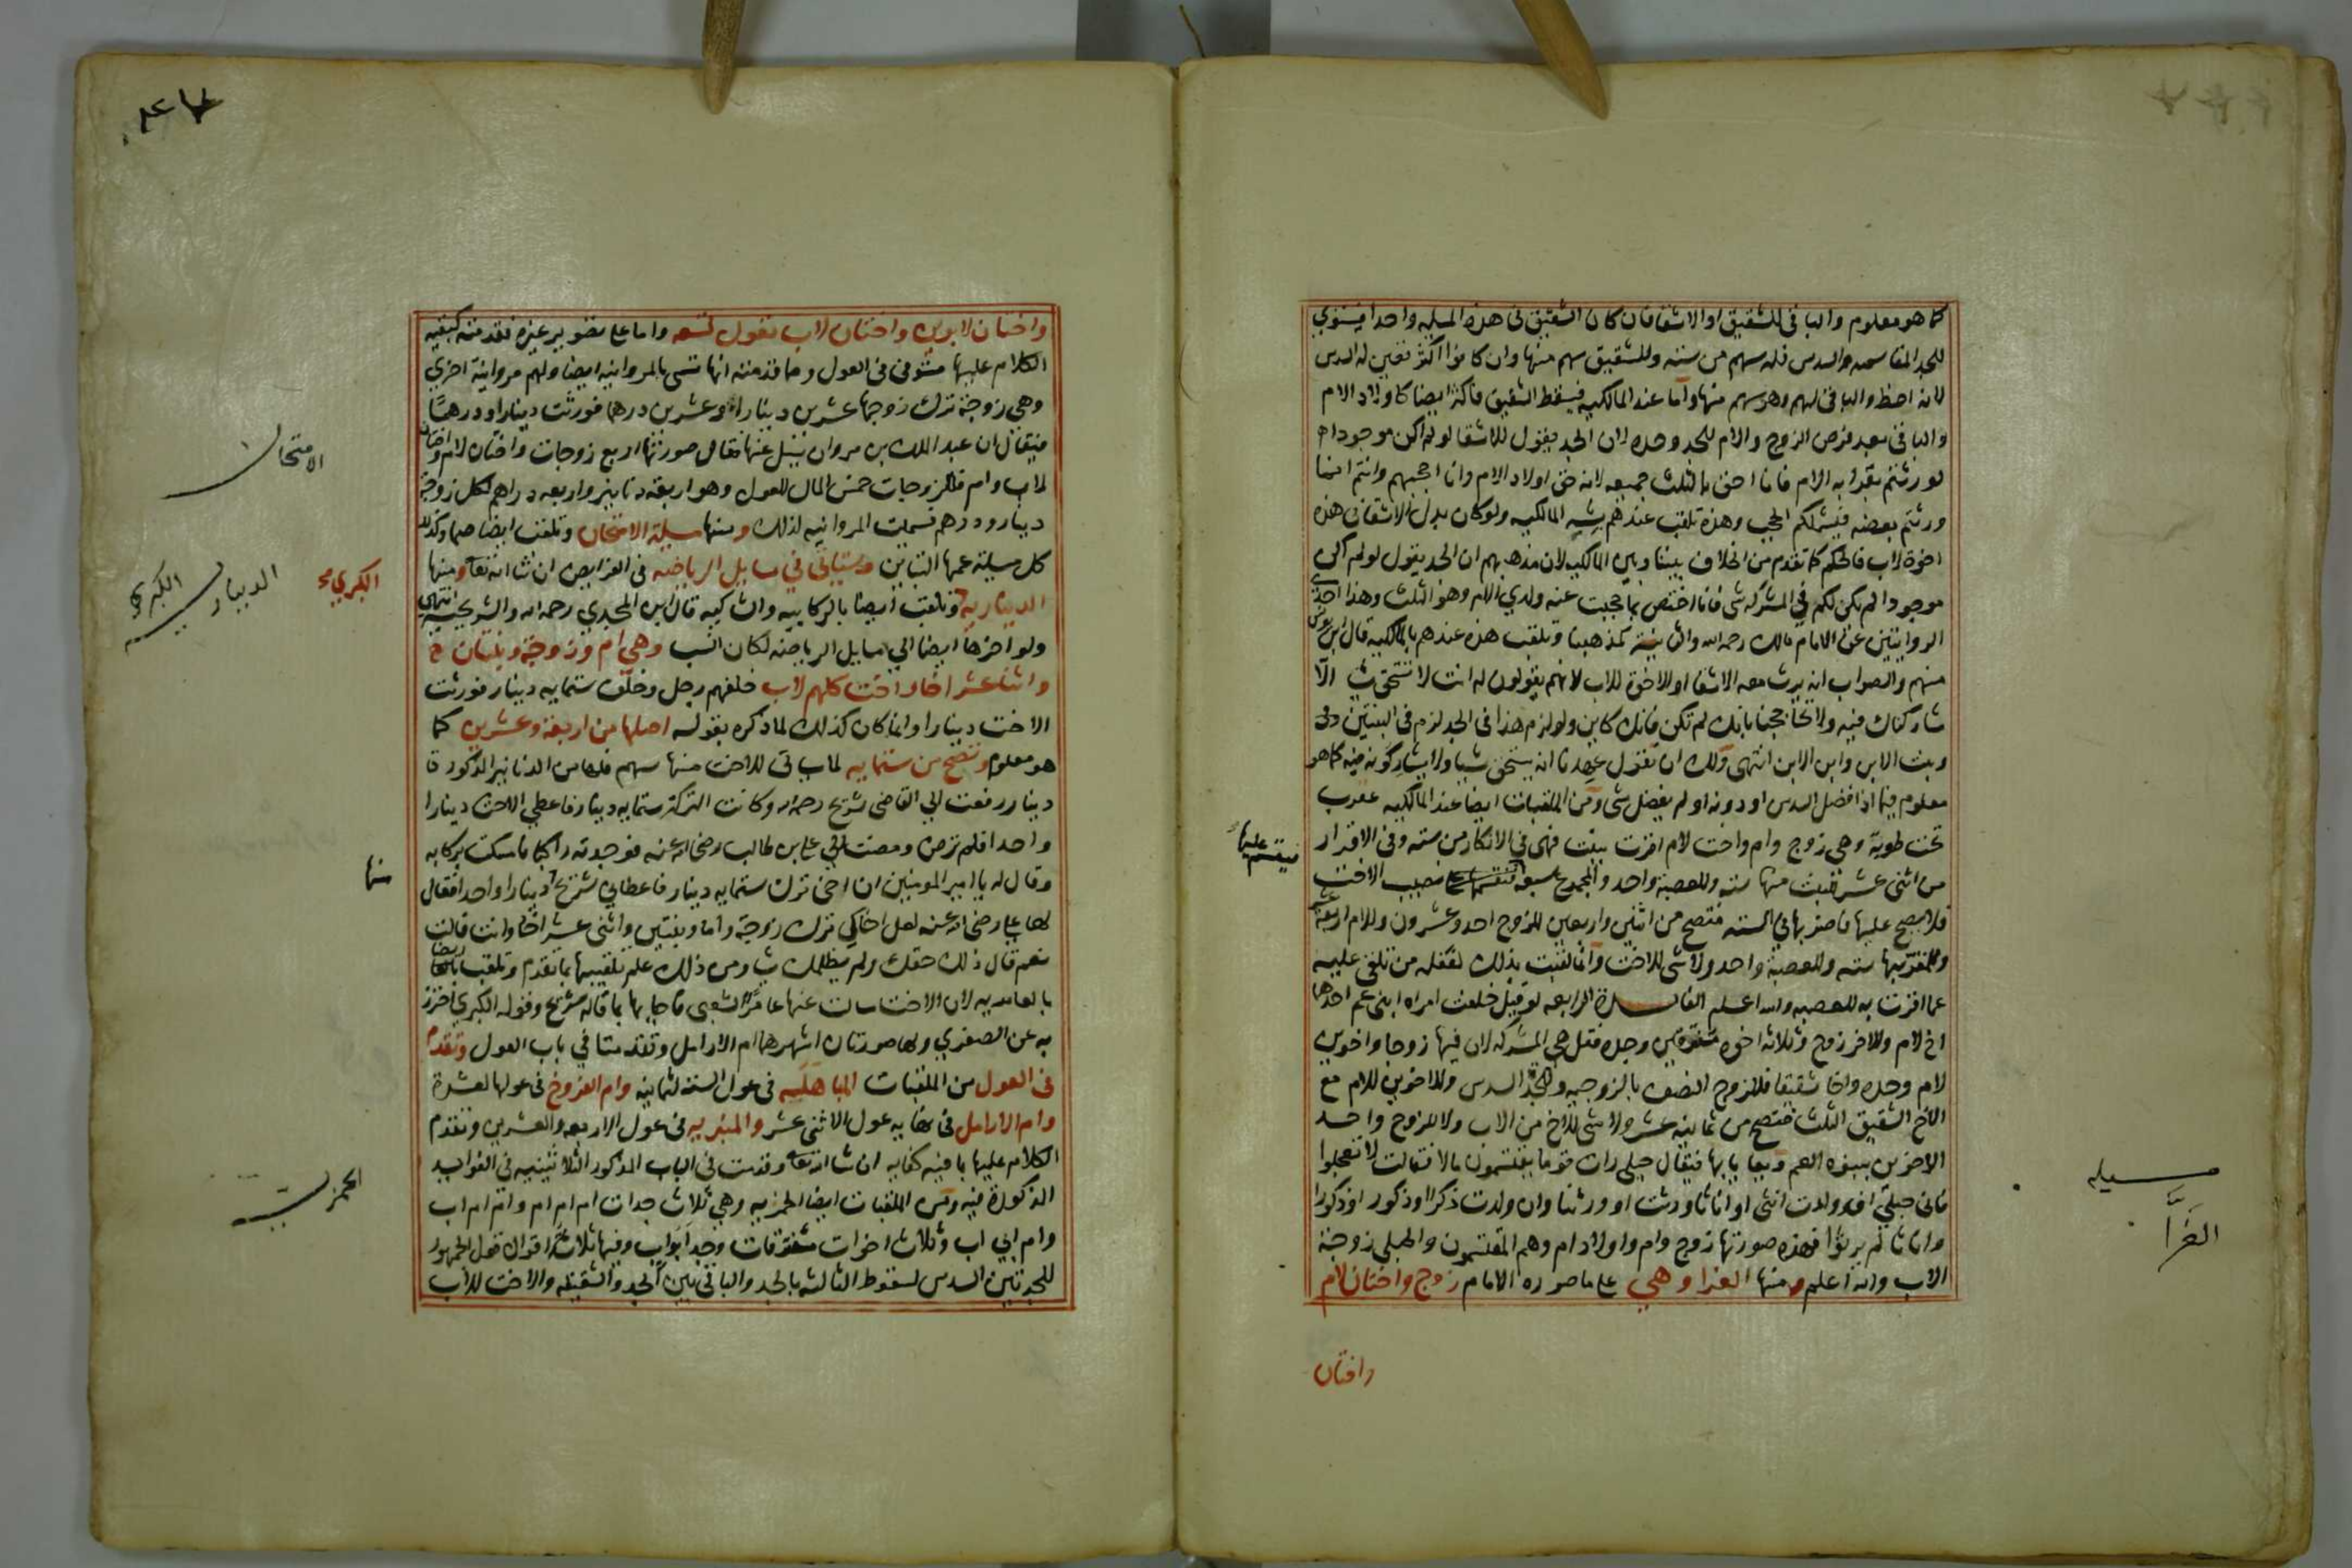 كما هو معلوم والباقي للشقيق او الاشقا فان كان الشقيق في هذه المسيلة واحدا فيستوي
للجد المقاسمه والسدس فله سهم من سته وللشقيق سهم منها وان كانوا اكثر تعين له السدس
لانه احظ والباقي لهم وهو سهم منها واما عند المالكيه فيسقط الشقيق فاكثر ايضا كاولاد الام
والباقي بعد فرض الزوج والام للجد وحده لان الجد يقول للاشقا لو لم اكن موجودا
لورثتم بقرابه الام فانا احق بالثلث جميعه لانه حق اولاد الام وانا احجبهم وانتم انما
ورثتم بعضه فيشملكم الحجب وهذه تلقب عندهم بشبه المالكيه ولو كان بدل الاشقا في هذه
اخوة لاب فالحكم كما تقدم من الخلاف بيننا وبين المالكيه لان مذهبهم ان الجد يقول لو لم اكن
موجودا لم يكن لكم في المشركه شي فانا اختص بما حجبت عنه ولدي الام وهو الثلث وهذا احدى
الروايتين عن الامام مالك رحمه الله والثانية كمذهبنا وتلقب هذه عندهم بالمالكية قال ابن يونس
منهم والصواب ان يرث معه الاشقا او الاخوة للاب لانهم يقولون له انت لا تستحق شيا الا
شاركناك فيه ولا تحاججنا بانك لم تكن فانك كاين ولو لزم هذا في الجد لزم في البنتين
وبنت الابن وابن الابن انتهى ولك ان تقول عهدنا انه يستحق شيا ولا يشاركونه فيه كما هو
معلوم فيما اذا فضل السدس او دونه او لم يفضل شي ومن الملقبات ايضا عند المالكيه عقرب
تحت طوبة وهي زوج وام واخت لام اقرت ببنت فهي في الانكار من سته وفي الاقرار
من اثنى عشر للبنت منها سته وللعصبة واحد والمجموع سبعة نصيب الاخت
فيقسم عليها
فلا يصح عليها فاضربها في السته فتصح من اثنين واربعين للزوج احد وعشرون وللام اربعة عشر
وللمقر بها سته وللعصبة واحد ولا شي للاخت وانما لقبت بذلك لغفله من تلقى عليه
عما اقرت به للعصبه والله اعلم الفايدة الرابعه لو قيل خلفت امراه ابنى عم احدهما
اخ لام والاخر زوج وثلاثه اخوة متفرقين وجده فقل هي المشركه لان فيها زوجا واخوين
لام وجده واخا شقيقا فللزوج النصف بالزوجيه وللجدة السدس وللاخوين للام مع
الاخ الشقيق الثلث فتصح من ثمانية عشر ولا شي للاخ من الاب ولا للزوج واحد
الاخوين ببنوه العم ويعايا بها فيقال حبلى رات قوما يقتسمون مالا فقالت لا تعجلوا
فاني حبلى ان ولدت انثى او اناثا ورثت او ورثنا وان ولدت ذكرا او ذكور او ذكورا
واناثا لم يرثوا فهذه صورتها زوج وام واولاد ام وهم المقتسمون والحبلى زوجة
الاب والله اعلم ومنها الغرا وهي على ما صوره الامام زوج واختان لام
مسيله
الغرَّا
واختان
واختان لابوين واختان لاب تعول لتسعه واما على تصوير غيره فقد منه كيفيه
الكلام عليها مستوفى في العول وما قدمته انها تسمى بالمروانيه ايضا ولهم مروانية اخرى
وهي زوجة ترك زوجها عشرين دينارا وعشرين درهما فورثت دينارا ودرهما
فيقال ان عبد الملك بن مروان سيل عنها فقال صورتها اربع زوجات واختان لام واختان
لاب وام فللزوجات خمس المال للعول وهو اربعة دنانير واربعه دراهم لكل زوجة
دينار ودرهم فسميت المروانيه لذلك ومنها مسيلة الامتحان وتلقب ايضا صما وكذلك
كل مسيلة عمها التباين وستاتي في مسايل الرياضيه في الفرايض ان شا الله تعا ومنها
الديناريه الكبري وتلقب ايضا بالركابيه والشاكيه قال ابن المجدي رحمه الله والشريحية انتهى
ولو اخرها ايضا الي مسايل الرياضه لكان انسب وهي ام وزوجة وبنتان
واثنا عشر اخا واخت كلهم لاب خلفهم رجل وخلف ستمايه دينار فورثت
الاخت دينارا وانما كان كذلك لما ذكره بقوله اصلها من اربعة وعشرين كما
هو معلوم وتصح من ستمايه لما ياتي للاخت منها سهم فلها من الدنانير المذكورة
دينار رفعت الي القاضي شريح رحمه الله وكانت التركه ستمايه دينار فاعطي الاخت دينارا
واحدا فلم ترض ومضت الي علي بن طالب رضي الله عنه فوجدته راكبا فامسكت بركابه
وقال له يا امير المومنين ان اخي ترك ستمايه دينار فاعطاني شريح منها دينارا واحدا فقال
لها علي رضي الله عنه لعل اخاكي ترك زوجة واما وبنتين واثنى عشر اخا وانت قالت
نعم قال ذلك حقك ولم يظلمك شيا ومن ذلك علم تلقيبها بما تقدم وتلقب ايضا
بالعامريه لان الاخت سالت عنها عامرا الشعبي فاجابها بما قاله شريح وقوله الكبري احترز
به عن الصغري ولها صورتان اشهرهما ام الارامل وتقدمتا في باب العول وتقدم
في العول من الملقبات المباهليه في عول السته لثمانيه وام الفروخ في عولها لعشرة
وام الارامل في نهايه عول الاثنى عشر والمنبريه في عول الاربعه والعشرين وتقدم
الكلام عليها بما فيه كفايه ان شا الله تعا وقدمت في الباب المذكور الثلاثينيه في الفوايد
المذكورة فيه ومن الملقبات ايضا الحمزيه وهي ثلاث جدات ام ام ام وام ام اب
وام ابي اب وثلاث اخوات متفرقات وجد ابو اب وفيها ثلاثة اقوال قول الجمهور
للجدتين السدس لسقوط الثالثه بالجد والباقي بين الجد والشقيقه والاخت للاب
الامتحان
الكبري صح
الديناريه الكبري
منها
الحمزيه